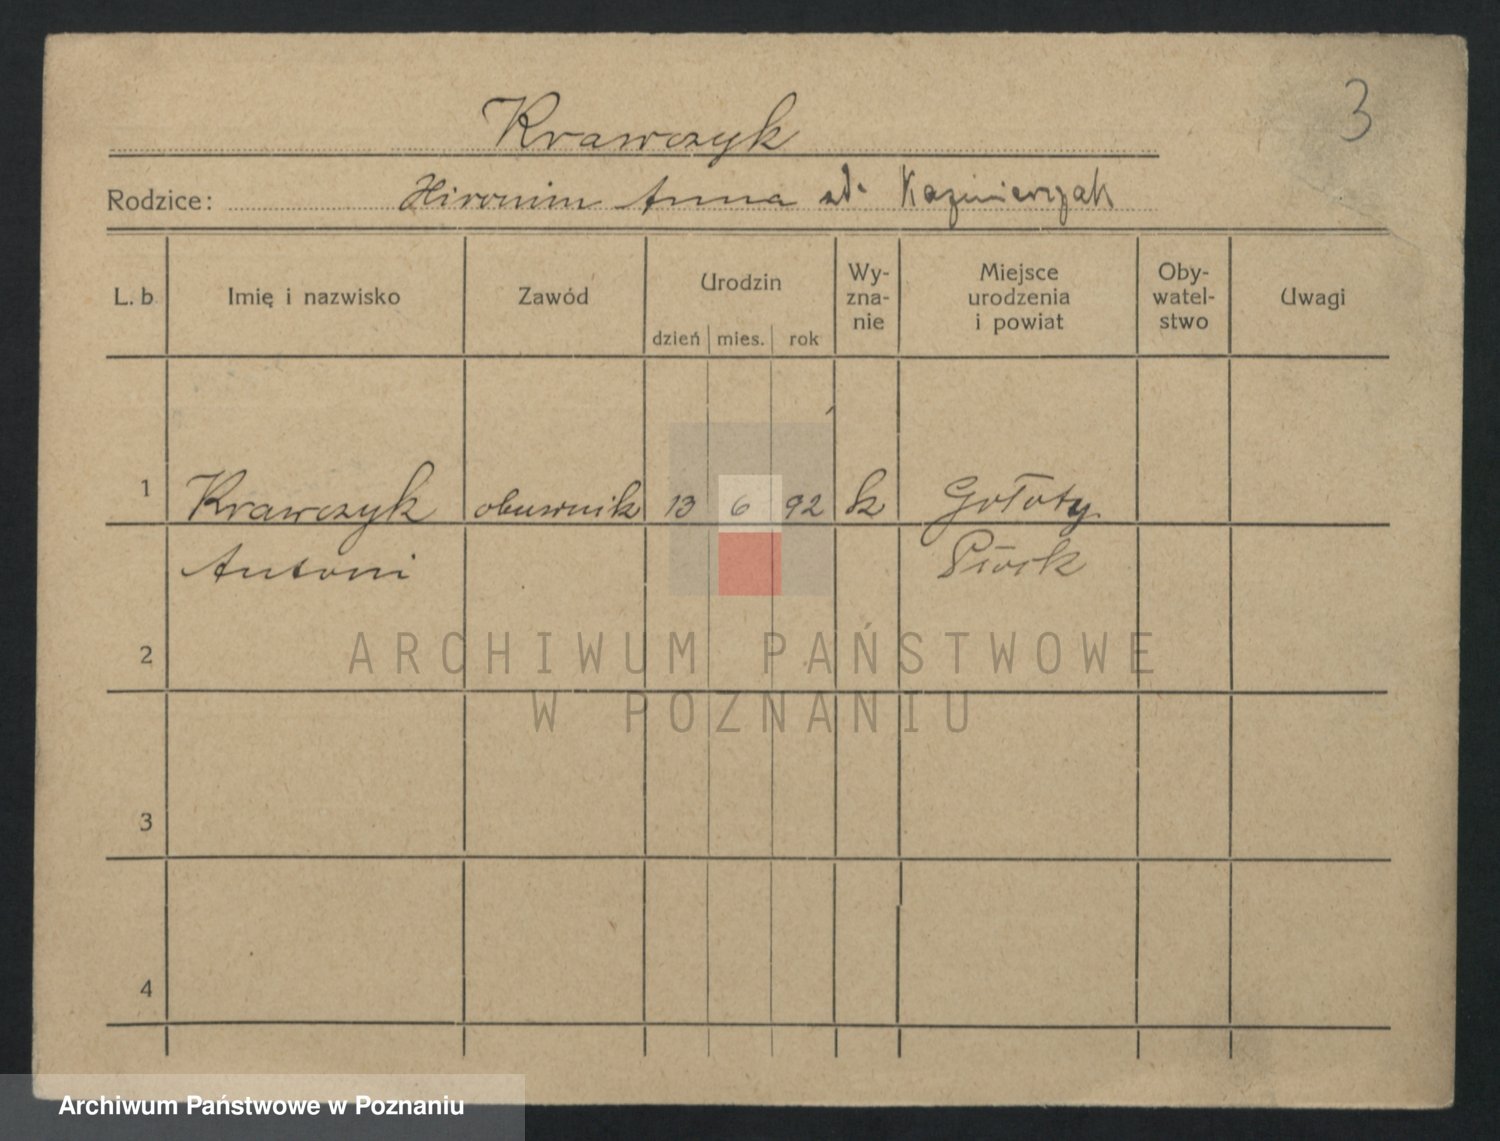 3
Krawczyk
Rodzice: Hironim Anna zd. Kazimierczak
L. b Imię i nazwisko Zawód Urodzin dzień mies. rok Wy-zna-nie Miejsce urodzenia i powiat Oby-watel-stwo Uwagi
1 Krawczyk obuwnik 13 6 92 k Gołoty
Antoni Płock
2
ARCHIWUM PAŃSTWOWE
W POZNANIU
3
4
Archiwum Państwowe w Poznaniu